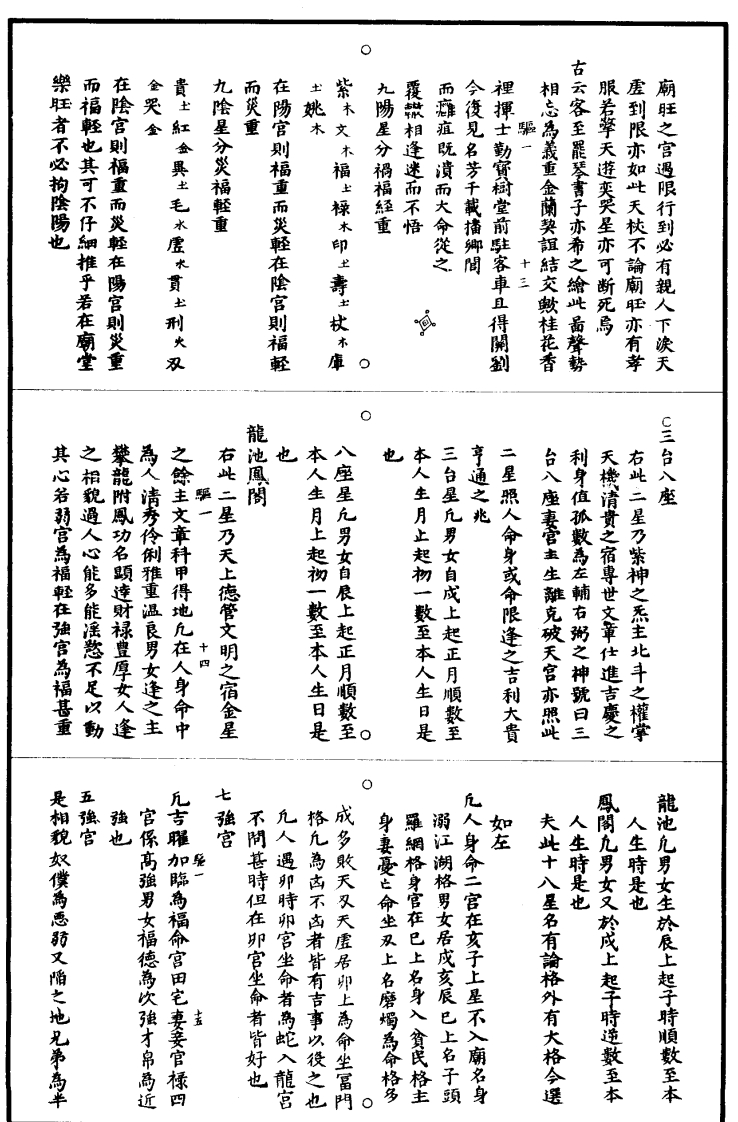 廟旺之宮過限行到必有親人下淚天
虛到限亦如此天杖不論廟旺亦有孝
服若擎天遊奕哭星亦可断死焉
古云客至罷琴書子亦希之繪此啚聲勢
相忘為義重金蘭契誼結交數桂花香
驅一 十三
裡揮士勤寳樹堂前駐客車且得關劉
今復見名芳千載播鄉間
而癰疽既潰而大命從之
覆轍相逢迷而不悟
九陽星分禍福経重
紫木文木福土祿木印土壽土杖木庫
土姚木
在陽官則福重而災輕在陰宫則福輕
而災重
九陰星分災福輕重
貴土紅金異土毛水虛水貫土刑火刃
金哭金
在陰宫則福重而災輕在陽宫則災重
而福輕也其可不仔細推乎若在廟堂
樂旺者不必拘陰陽也
○三台八座
右此二星乃紫神之炁主北斗之權掌
天機清貴之宿專世文章仕進吉慶之
利身值孤數為左輔右弼之神號曰三
台八座妻宮主生離克破天宮亦照此
二星照人命身或命限逢之吉利大貴
亨通之兆
三台星凢男女自戌上起正月順數至
本人生月止起初一數至本人生日是
也
八座星凢男女自辰上起正月順數至
本人生月上起初一數至本人生日是
也
龍池鳳閣
右此二星乃天上德管文明之宿金星
驅一 十四
之餘主文章科甲得地凢在人身命中
為人清秀伶俐雅重溫良男女逢之主
攀龍附鳳功名顯達財禄豊厚女人逢
之相貌過人心能多能滛慾不足以動
其心若弱宮為福輕在強宮為福甚重
龍池凢男女生於辰上起子時順數至本
人生時是也
鳳閣凢男女又於戌上起子時逆數至本
人生時是也
夫此十八星名有論格外有大格今選
如左
凢人身命二宫在亥子上星不入廟名身
溺江湖格男女居戌亥辰巳上名子頭
羅網格身官在巳上名身入貧民格主
身妻憂亡命坐刃上名磨燭為命格多
成多敗天刃天虛居卯上為命坐冨門
格凢為凶不凶者皆有吉事以後之也
凢人遇卯時卯宫坐命者為蛇入龍宫
不問甚時但在卯宫坐命者皆好也
七強宫
驅一 十五
凢吉曜加臨為福命宫田宅妻妾官禄四
官係髙強男女福德為次強才帛為近
強也
五強宫
是相貌奴僕為悪弱又陷之地兄弟為半